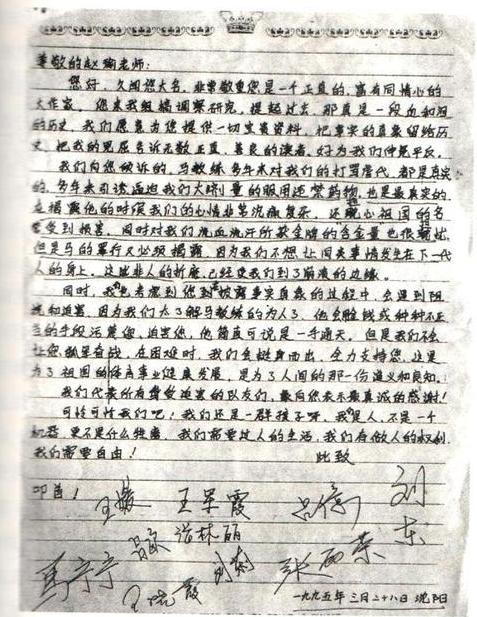 尊敬的赵瑜老师：
您好，久闻您大名，非常敬重您是一个正直的，富有同情心的
大作家。您来我组搞调察研究，提起过去，那真是一段血和泪
的历史，我们愿意为您提供一切宝贵资料，把事实的真象留给历
史，把我的冤屈告诉无数正直、善良的读者，好为我们伸冤平反。
我们向您倾诉的，马教练多年来对我们的打骂虐代，都是真实
的。多年来引诱逼迫我们大剂量的服用违禁药物，也是最真实的。
在揭露他的时候我们的心情非常沉痛复杂，还担心祖国的名
誉受到损害，同时对我们流血流汗所获金牌的含金量也很担忧，
但是马的罪行又必须揭露，因为我们不想让同类事情发生在下一代
人的身上，这些非人的折磨，已经使我们到了崩溃的边缘。
同时，我们也考虑到您到披露事实真象的过程中，会遇到阻
挠和迫害，因为我们太了解马教练的为人了，他会赊钱或种种不正
当的手段活动您，迫害您，他简直可说是一手通天。但是我们不会
让您孤军奋战，在困难时，我们会挺身而出，全力支持您，这是
为了祖国的体育事业健康发展，是为了人间的那一份道义和良知。
我们代表所有曾受迫害的队友们，最向您表示最真诚的感谢！
可怜可怜我们吧！我们还是一群孩子呀，我是人，不是一个
机器，更不是什么牲畜，我们需要过人的生活，我们有做人的权利，
我们需要自由！　此致
叩首！
王媛 王军霞 吕亿 刘东
吕欧 张林丽
马宁宁 刘莉 张丽荣
王晓霞
一九九五年三月二十八日 沈阳